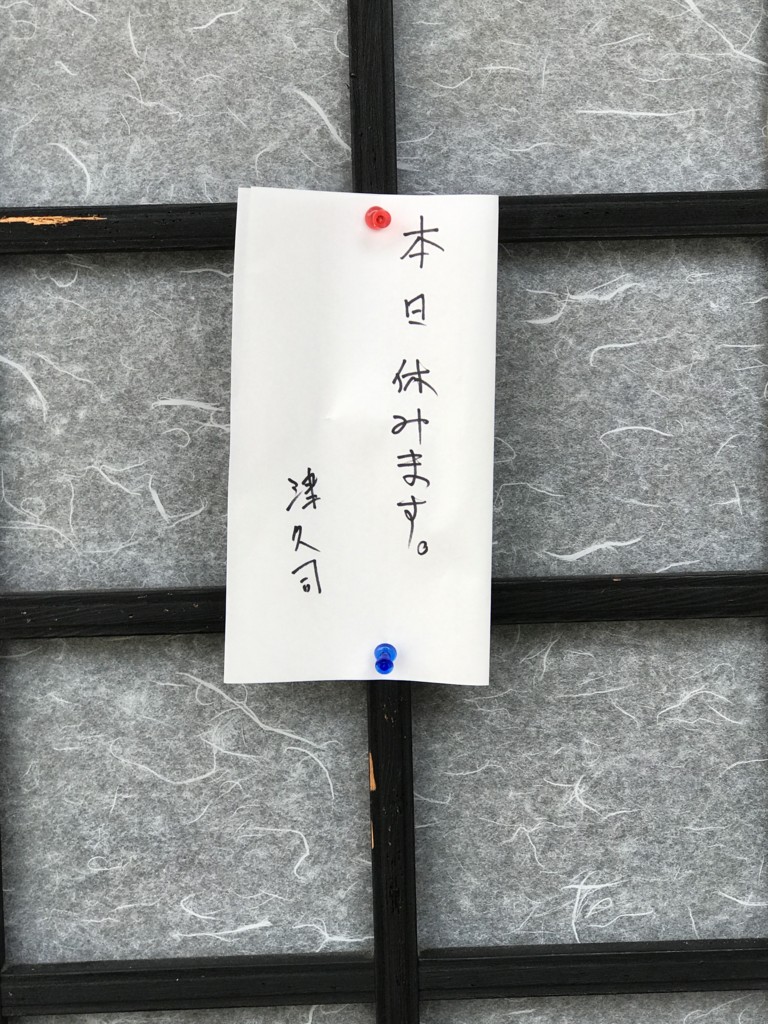 本日休みます。
津久司